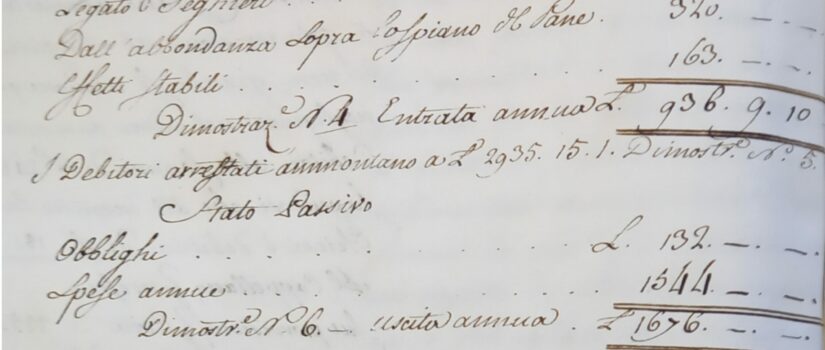 Legato Seghieri . . .
Dall' abbondanza sopra l'ospiano del Pane. 320. —. —.
Effetti stabili . . . . . . . . 163. —. —.
Dimostraz.e N. 4 Entrata annua L. 936. 9. 10
I Debitori arrestati ammontano a L. 2935. 15. 1. Dimostr.e N.o 5.
Stato Passivo
Obblighi . . . . . . . . L. 132. —. —.
Spese annue . . . . . . . . 1544. —. —
Dimostr.e N.o 6. — uscita annua . L. 1676. —. —